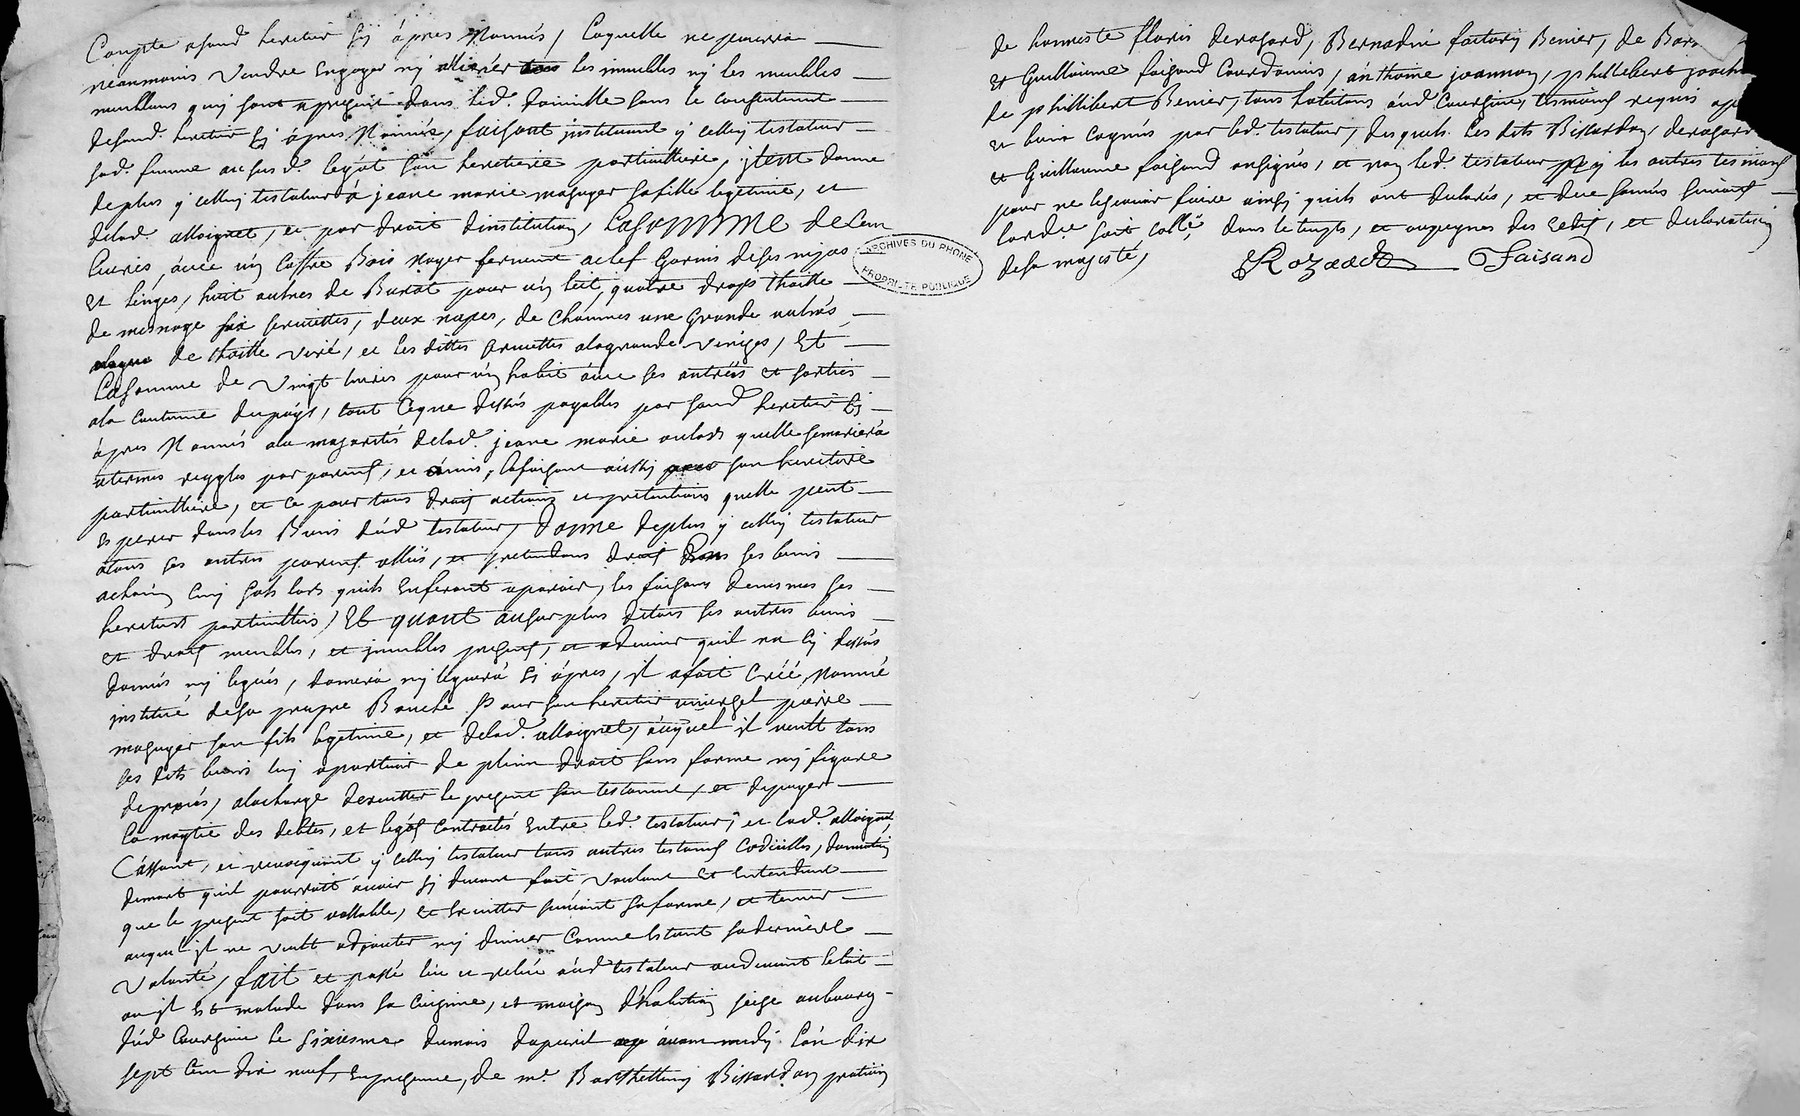 Compte asond heretier Cy ápres Nommés, Laquelle ne pourra
neanmoins Vendre Engager nÿ alliener les immubles nÿ les meubles
meublans quy sont apresent dans led. domicille sans le consentement
desond. heretier Cy ápres Nommés, faisant instituant y celluy testateur
sad. femme au susd. legat son heretiere particulliere, jtem donne
deplus y celluy testateur á jeane marie magayer sa fille legitime, et
delad. alloignet, et par droit dinstitution, La somme de Cent
Livres, ávec un Coffre Bois noyer fermant aclef Garnis de ses nipes
et linges, huit aulnes de Burat pour un lict, quatre draps thoille
de mesnage six serviettes, deux napes, de Chanvres une Grande autres
de thoille, et les dittes serviettes alagrande Venises, Et
La somme de Vingt livres pour un habit ávec ses entrées et sorties
ala Coutume du páÿs, tout Ceque dessus payables par sond heretier Cy
ápres Nommés ala majorités delad. jeane marie oulors quelle semariera
atermes regglés par parens, et ámis, lafaisant áussy son heretiere
particulliere, et ce pour tous droits actions et pretentions quelle peut
Esperer dans les Biens dúd testateur, donne deplus y celluy testateur
átous ses autres parens alliés, et pretendans droits dans ses biens
achácun Cinq sols lors quils En feront aparoir, les faisans demesmes ses
heretiers particulliers, Et quant au surplus detous ses autres biens
et droits meubles, et jmeubles presens, et advenir quil na Cy dessus
donnés nÿ legués, donnera nÿ léguera Cy ápres, il afait Créé, Nommé
institué desa propre Bouche Pour son heretier universel pierre
magayer son fils legitime, et delad. alloignet, áuquel il veult tous
ses dits biens luy apartenir de plein droit sans forme nÿ figure
deproces, alacharge dexecutter le present son testament, et depayer
la moytié des debtes, et legats Contractés Entre led. testateur, et lad. alloignet,
Cassant, et revocquant y celluy testateur tous autres testamens Codicilles, donnation
demort quil pourroit ávoir Cy devant fait Voulant Et Entendant
que le present soit vallable, et Executter suivant sa forme, et teneur
auquel il ne veult adjouter nÿ diminuer Comme Estant sa derniere
Volonté, fait et passé leu et releu áud testateur audevant le lict
ou il est malade dans sa Cuisine, et maison dhabitation size au bourg
dúd Courzieu le sixiesme dumois dapvril ávant midy Lán dix
sept Cent dix neuf, En presence, de me. Barthellemy Bissardon praticien
de honneste floris deragard, Bernadin Benier, de
et Guillaume faisand Cordonnier, ánthoine joannon, phillebert
de phillibert Benier, tous habitans áud Courzieu, tesmoins requis
et bien Cognus par led. testateur, desquels Les dits Bissardon, deragard
et Guillaume faisand onsignés, et non led. testateur nÿ les autres tesmoins
pour ne le scavoir faire ainsy quils ont declarés, et duement sommés suivant
Lordce. soit Collé, dans le temps, et aux peynes des Edits, et declaration
desa majesté,
Faisand
ARCHIVES DU RHONE
PROPRIÉTÉ PUBLIQUE